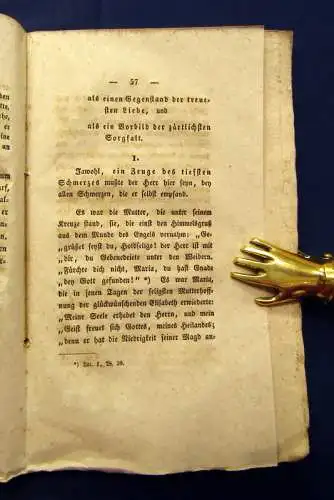 — 57 —
als einen Gegenstand der treue-
sten Liebe, und
als ein Vorbild der zärtlichsten
Sorgfalt.
I.
Jawohl, ein Zeuge des tiefsten
Schmerzes mußte der Herr hier seyn, bey
allen Schmerzen, die er selbst empfand.
Es war die Mutter, die unter seinem
Kreuze stand, sie, die einst den Himmelsgruß
aus dem Munde des Engels vernahm: „Ge-
„grüsset seyst du, Holdselige! der Herr ist mit
„dir, du Gebenedeiete unter den Weibern.
„Fürchte dich nicht, Maria, du hast Gnade
„bey Gott gefunden!“ *) Es war Maria,
die in jenen Tagen der seligsten Mutterhoff-
nung der glückwünschenden Elisabeth erwiederte:
„Meine Seele erhebet den Herrn, und mein
„Geist freuet sich Gottes, meines Heilandes;
„denn er hat die Niedrigkeit seiner Magd an-
*) Luc. 1,